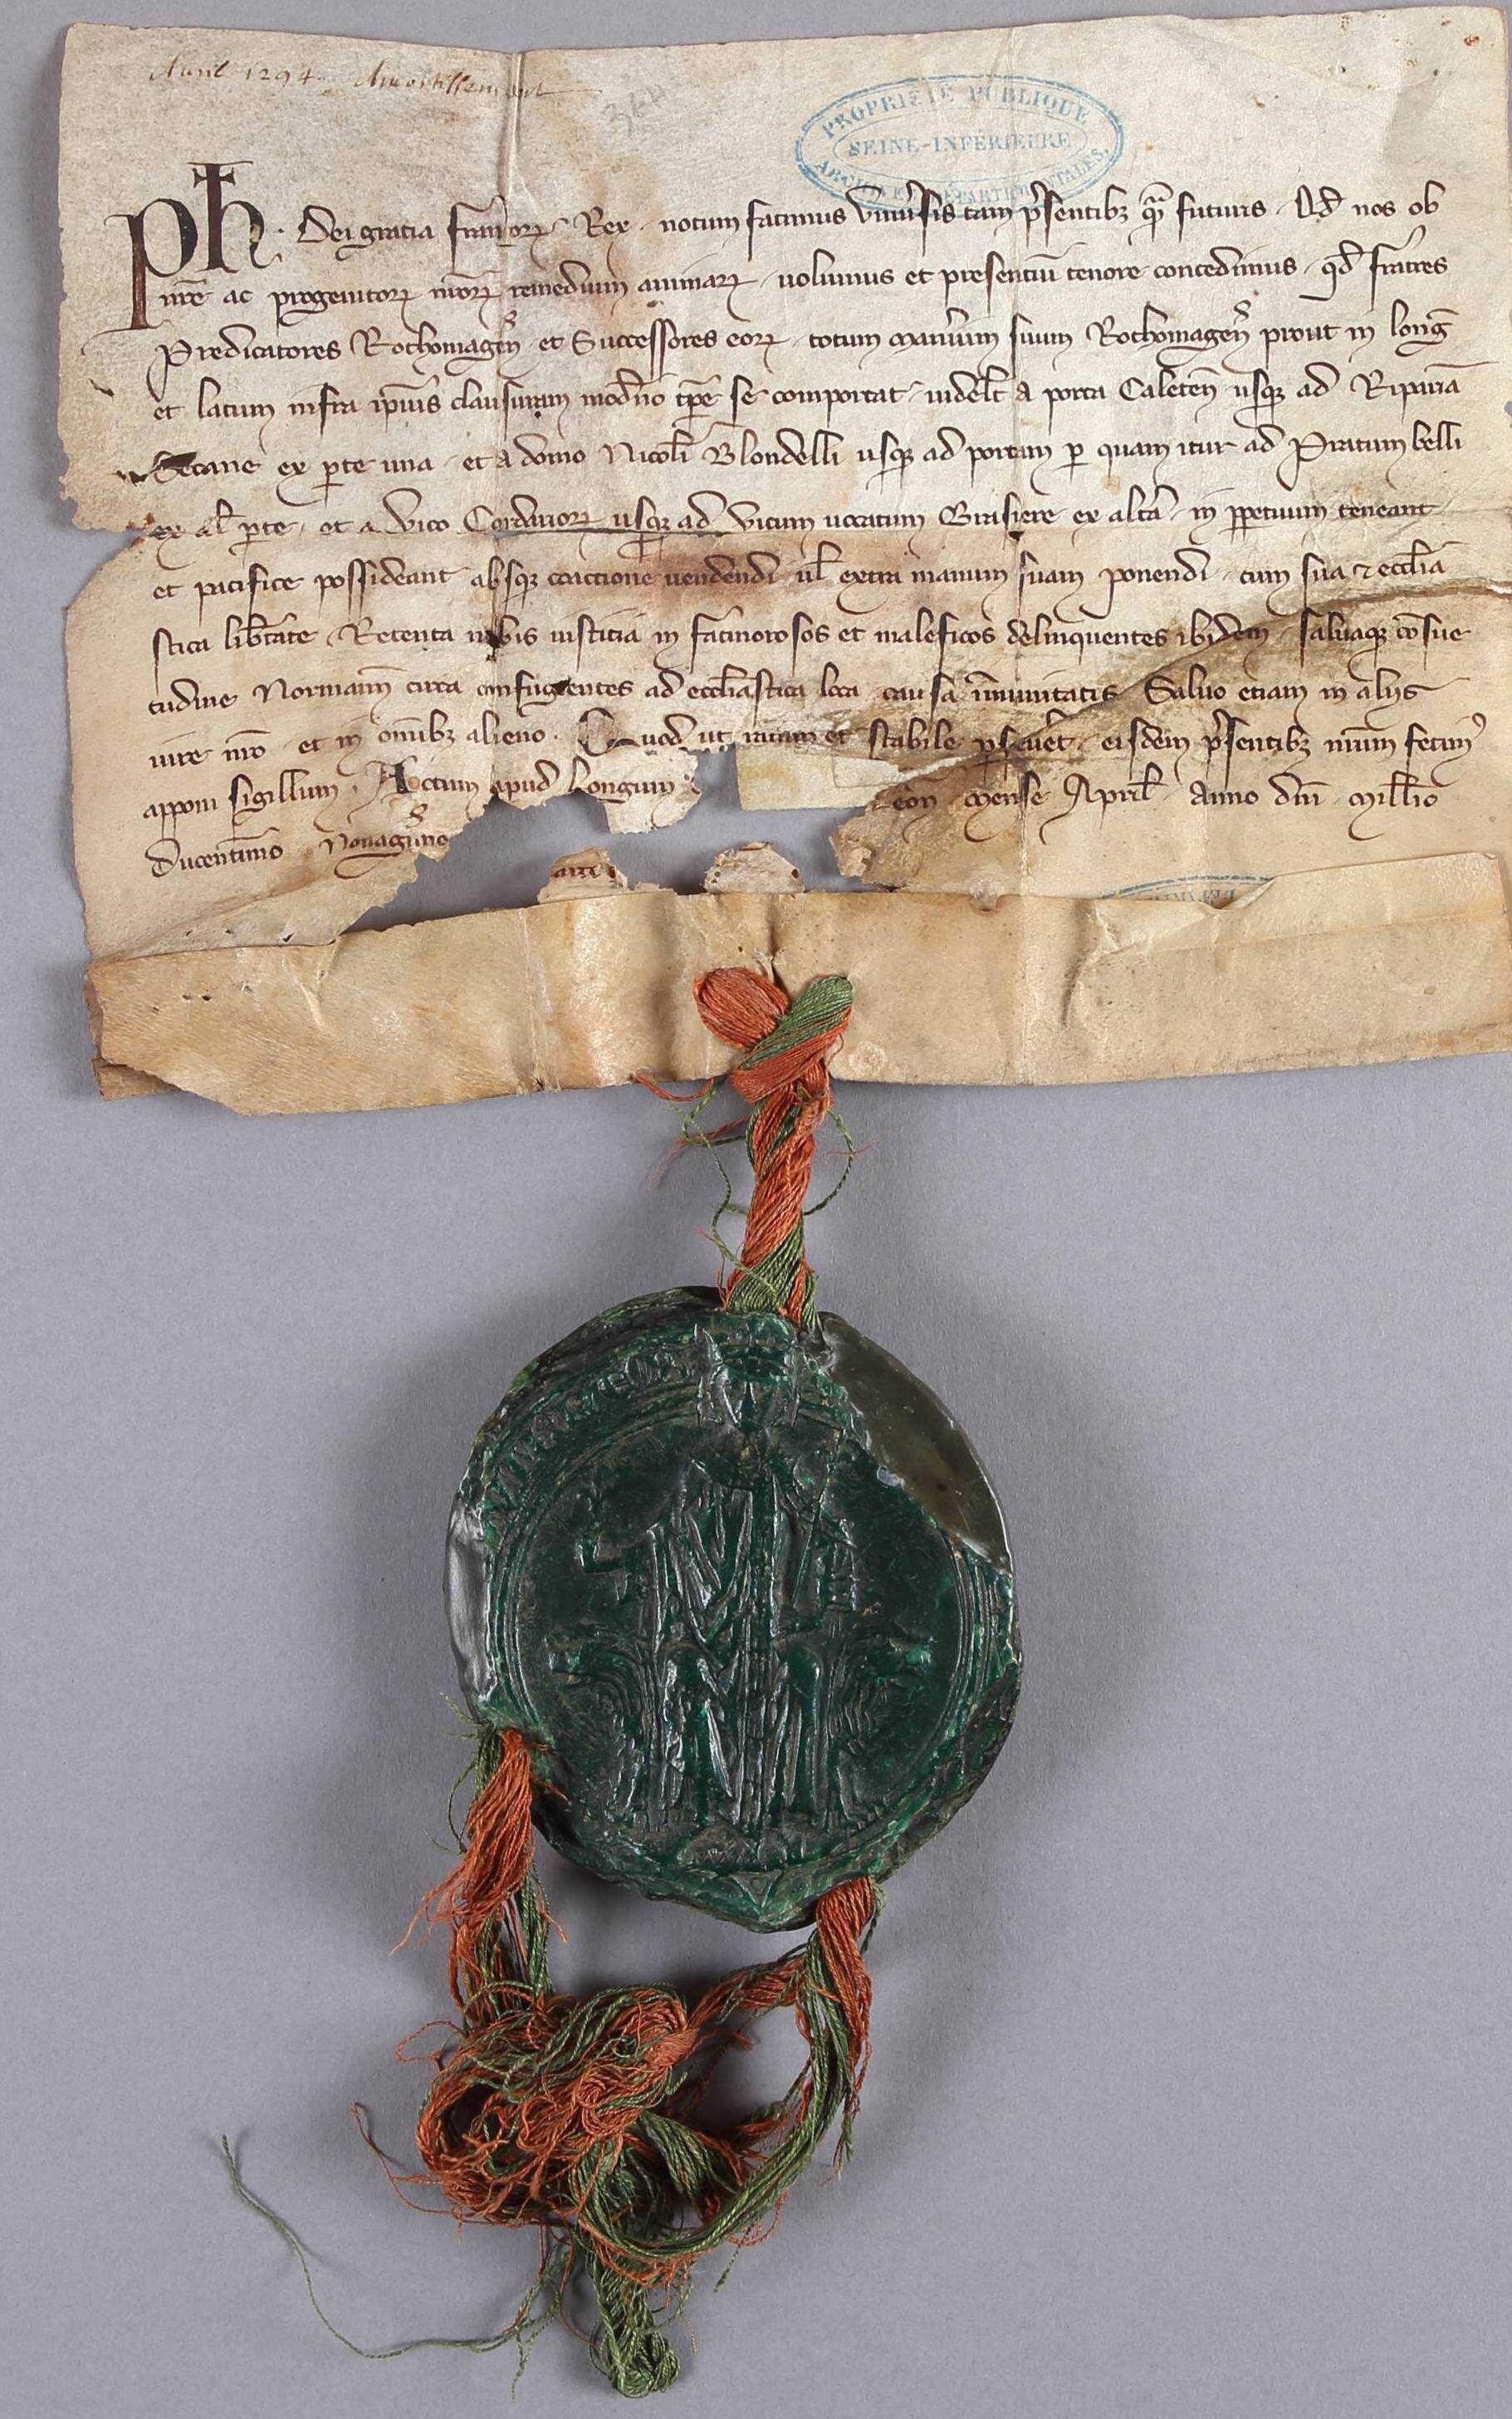 Avril 1294. Amortissement
PROPRIÉTÉ PUBLIQUE
SEINE-INFÉRIEURE
ARCHIVES DÉPARTEMENTALES.
Ph. Dei gratia Francorꝝ Rex. notum facimus Univ̾sis tam p̾sentibꝫ qͣm futuris. Qd̾ nos ob
nr̄e ac progenitorꝝ nr̄orꝝ remedium animarꝝ. uolumus et presentiū tenore concedimus. qd̾ fratres
Predicatores Rothomageñ et Successores eorꝝ. totum Maneriū suum Rothomageñ prout in long̃
et latum infra ip̄ius clausuram mod̾no tp̄re se comportat. uidelꝫ a porta Caleteñ usqꝫ ad Ripariā
Secane ex p̱te una. et a domo Nicol̾i Blondelli usqꝫ ad portam p̱ quam itur ad Pratum belli
ex al̾ p̱te. et a Vico Cordariorꝝ usqꝫ ad Vicum uocatum Brasiere ex alt̾a. in p̱petuum teneant
et pacifice possideant absqꝫ coactione uendendi ul̾ extra manum suam ponendi. cum sua eccl̾ia
stica lib̾tate. Retenta nobis iusticia in facinorosos et maleficos delinquentes ibidem. saluaqꝫ cōsue
tudine Normañ circa confugientes ad eccl̾iastica loca causa īmunitatis. Saluo etiam in aliis
iure nr̄o et in om̄ibꝫ alieno. Quod ut ratum et stabile p̱seuet̾. eisdem p̾sentibꝫ nr̄um fecimꝰ
apponi sigillum. Actum apud Longum
leoñ mense April̾. Anno dn̄i Mill̾io
Ducentesimo Nonag̾imo